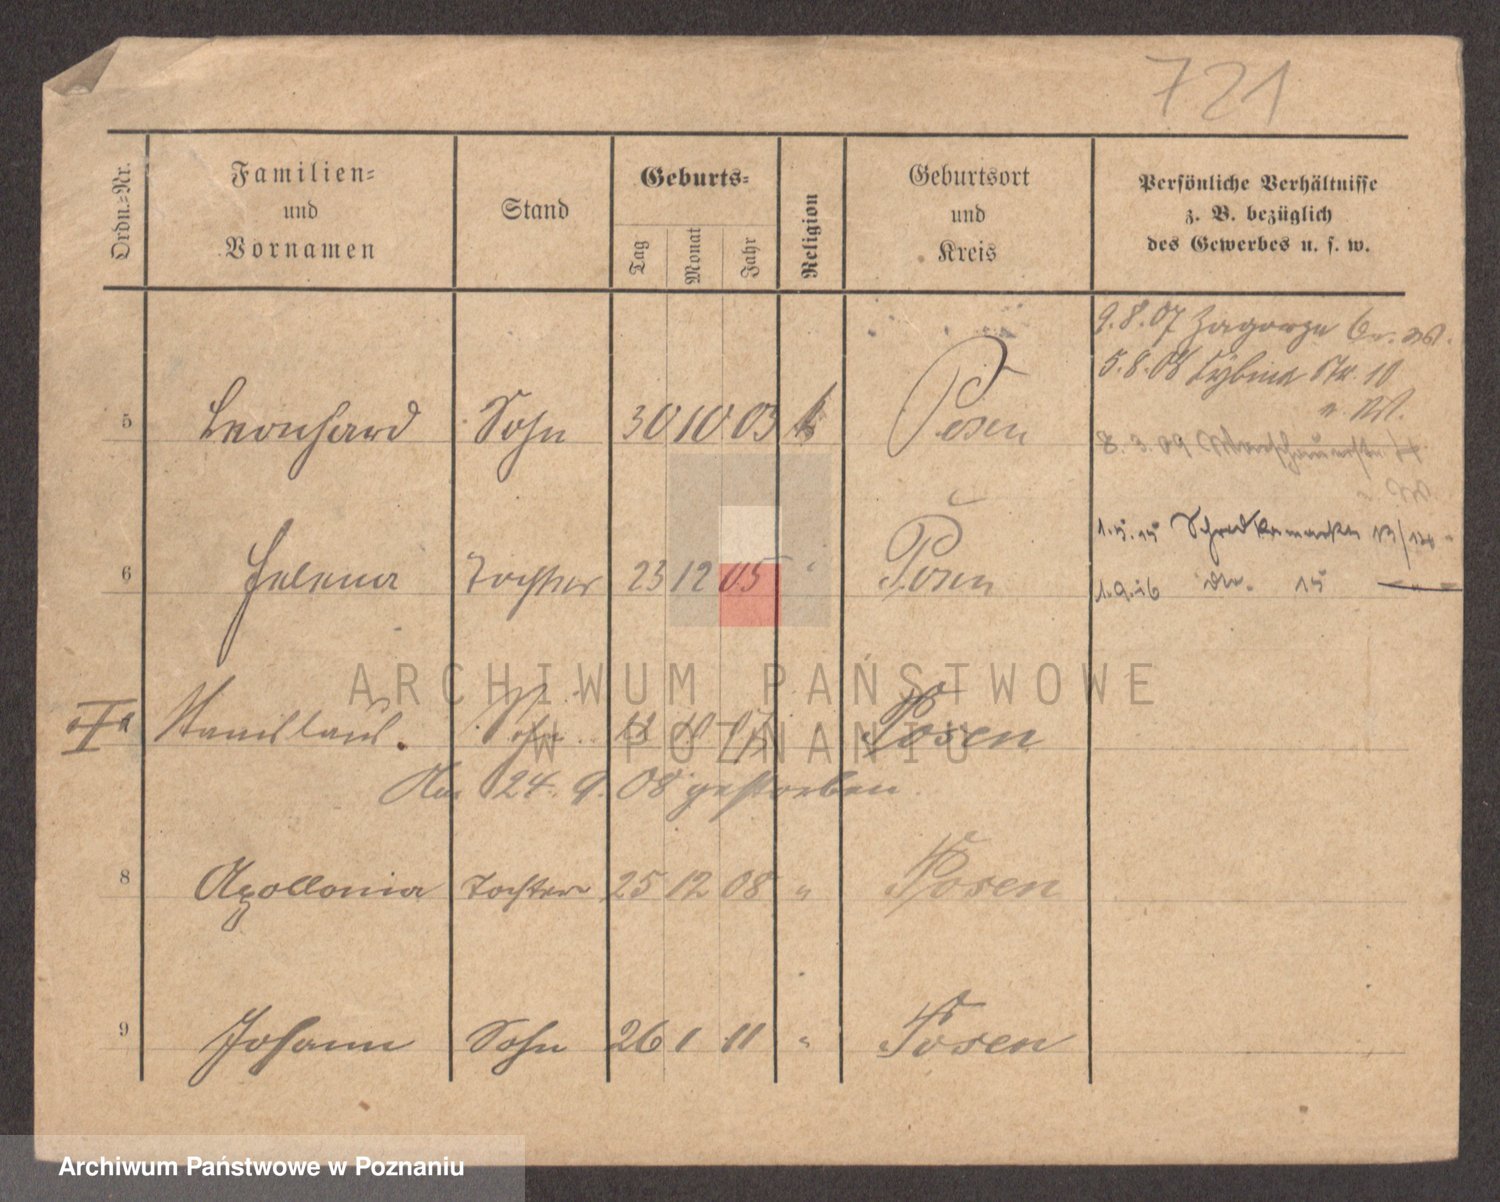 721
Ordn.-Nr.
Familien-
und
Vornamen
Stand
Geburts-
Tag
Monat
Jahr
Religion
Geburtsort
und
Kreis
Persönliche Verhältnisse
z. B. bezüglich
des Gewerbes u. s. w.
9.8.07 Zagorze
5.8.08 Cybina Str. 10
5 Leonhard Sohn 30 10 03 k Posen
8.3.09 Warschauerstr.
1.5.15 Schrodkamarkt 13/14
6 Helena Tochter 23 12 05 " Posen
1.9.16 15
Stanislaus. Sohn 10 07 Posen
Am 24.9.08 gestorben.
8 Apollonia Tochter 25 12 08 " Posen
9 Johann Sohn 26 1 11 " Posen
ARCHIWUM PAŃSTWOWE
W POZNANIU
Archiwum Państwowe w Poznaniu